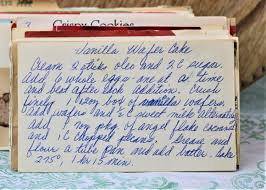 Crispy Cookies
Vanilla Wafer Cake
Cream 2 sticks oleo and 2 C sugar.
Add 6 whole eggs one at a time
and beat after each addition. Crush
finely 1 12oz box of vanilla wafers,
add wafers and ½ C sweet milk alternately
add 1 7oz pkg of angel flake coconut
and 1 C chopped pecans. Grease and
flour a tube pan and add batter. bake
275°, 1 hr 15 min.